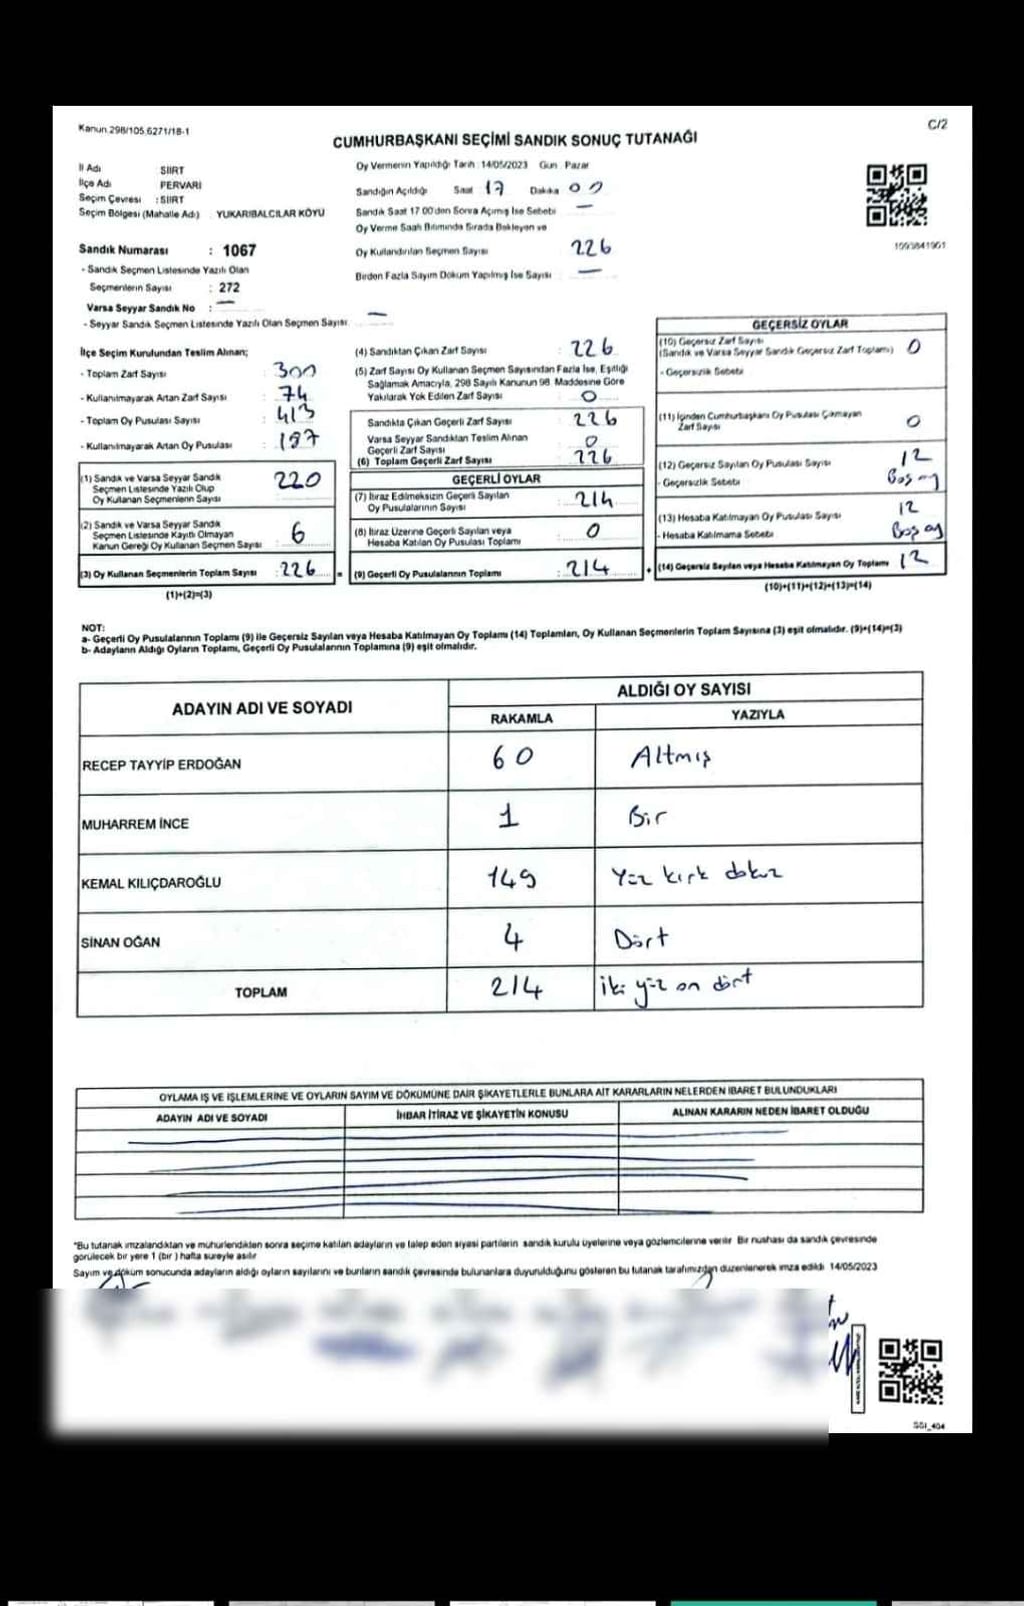 Kanun.298/105.6271/18-1
C/2
CUMHURBAŞKANI SEÇİMİ SANDIK SONUÇ TUTANAĞI
İl Adı SİİRT
İlçe Adı PERVARİ
Seçim Çevresi : SİİRT
Seçim Bölgesi (Mahalle Adı) . YUKARIBALCILAR KÖYÜ
Sandık Numarası : 1067
- Sandık Seçmen Listesinde Yazılı Olan
Seçmenlerin Sayısı : 272
Varsa Seyyar Sandık No : —
- Seyyar Sandık Seçmen Listesinde Yazılı Olan Seçmen Sayısı: —
Oy Vermenin Yapıldığı Tarih : 14/05/2023 Gün : Pazar
Sandığın Açıldığı Saat 17 Dakika 00
Sandık Saat 17 00'den Sonra Açılmış İse Sebebi —
Oy Verme Saati Bitiminde Sırada Bekleyen ve
Oy Kullandırılan Seçmen Sayısı 226
Birden Fazla Sayım Döküm Yapılmış İse Sayısı —
1093841961
İlçe Seçim Kurulundan Teslim Alınan;
- Toplam Zarf Sayısı : 300
- Kullanılmayarak Artan Zarf Sayısı : 74
- Toplam Oy Pusulası Sayısı : 413
- Kullanılmayarak Artan Oy Pusulası : 187
(1) Sandık ve Varsa Seyyar Sandık
Seçmen Listesinde Yazılı Olup
Oy Kullanan Seçmenlerin Sayısı : 220
(2) Sandık ve Varsa Seyyar Sandık
Seçmen Listesinde Kayıtlı Olmayan
Kanun Gereği Oy Kullanan Seçmen Sayısı : 6
(3) Oy Kullanan Seçmenlerin Toplam Sayısı : 226 =
(1)+(2)=(3)
(4) Sandıktan Çıkan Zarf Sayısı : 226
(5) Zarf Sayısı Oy Kullanan Seçmen Sayısından Fazla İse, Eşitliği
Sağlamak Amacıyla, 298 Sayılı Kanunun 98. Maddesine Göre
Yakılarak Yok Edilen Zarf Sayısı : 0
Sandıkta Çıkan Geçerli Zarf Sayısı : 226
Varsa Seyyar Sandıktan Teslim Alınan
Geçerli Zarf Sayısı 0
(6) Toplam Geçerli Zarf Sayısı : 226
GEÇERLİ OYLAR
(7) İtiraz Edilmeksizin Geçerli Sayılan
Oy Pusulalarının Sayısı : 214
(8) İtiraz Üzerine Geçerli Sayılan veya
Hesaba Katılan Oy Pusulası Toplamı : 0
(9) Geçerli Oy Pusulalarının Toplamı : 214 +
GEÇERSİZ OYLAR
(10) Geçersiz Zarf Sayısı
(Sandık ve Varsa Seyyar Sandık Geçersiz Zarf Toplamı) 0
- Geçersizlik Sebebi
(11) İçinden Cumhurbaşkanı Oy Pusulası Çıkmayan
Zarf Sayısı 0
(12) Geçersiz Sayılan Oy Pusulası Sayısı 12
- Geçersizlik Sebebi Boş oy
(13) Hesaba Katılmayan Oy Pusulası Sayısı 12
- Hesaba Katılmama Sebebi Boş oy
(14) Geçersiz Sayılan veya Hesaba Katılmayan Oy Toplamı 12
(10)+(11)+(12)+(13)=(14)
NOT:
a- Geçerli Oy Pusulalarının Toplamı (9) ile Geçersiz Sayılan veya Hesaba Katılmayan Oy Toplamı (14) Toplamları, Oy Kullanan Seçmenlerin Toplam Sayısına (3) eşit olmalıdır. (9)+(14)=(3)
b- Adayların Aldığı Oyların Toplamı, Geçerli Oy Pusulalarının Toplamına (9) eşit olmalıdır.
ADAYIN ADI VE SOYADI ALDIĞI OY SAYISI
RAKAMLA YAZIYLA
RECEP TAYYİP ERDOĞAN 60 Altmış
MUHARREM İNCE 1 Bir
KEMAL KILIÇDAROĞLU 149 Yüz kırk dokuz
SİNAN OĞAN 4 Dört
TOPLAM 214 iki yüz on dört
OYLAMA İŞ VE İŞLEMLERİNE VE OYLARIN SAYIM VE DÖKÜMÜNE DAİR ŞİKAYETLERLE BUNLARA AİT KARARLARIN NELERDEN İBARET BULUNDUKLARI
ADAYIN ADI VE SOYADI İHBAR İTİRAZ VE ŞİKAYETİN KONUSU ALINAN KARARIN NEDEN İBARET OLDUĞU
*Bu tutanak imzalandıktan ve mühürlendikten sonra seçime katılan adayların ve talep eden siyasi partilerin sandık kurulu üyelerine veya gözlemcilerine verilir Bir nüshası da sandık çevresinde
görülecek bir yere 1 (bir) hafta süreyle asılır
Sayım ve döküm sonucunda adayların aldığı oyların sayılarını ve bunların sandık çevresinde bulunanlara duyurulduğunu gösteren bu tutanak tarafımızdan düzenlenerek imza edildi 14/05/2023